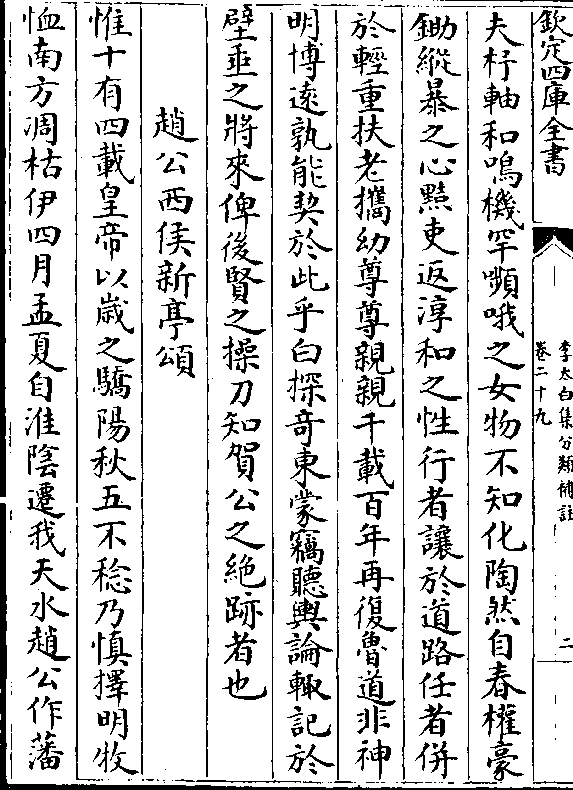 欽定四庫全書
李太白集分類補註
卷二十九
二
夫杼軸和鳴機罕嚬哦之女物不知化陶然自春權豪
鋤縱暴之心黠吏返淳和之性行者讓於道路任者併
於輕重扶老攜幼尊尊親親千載百年再復魯道非神
明博遠孰能契於此乎白探奇東蒙竊聽輿論輙記於
壁垂之將來俾後賢之操刀知賀公之絶跡者也
趙公西侯新亭頌
惟十有四載皇帝以嵗之驕陽秋五不稔乃慎擇明牧
恤南方凋枯伊四月孟夏自淮陰遷我天水趙公作藩